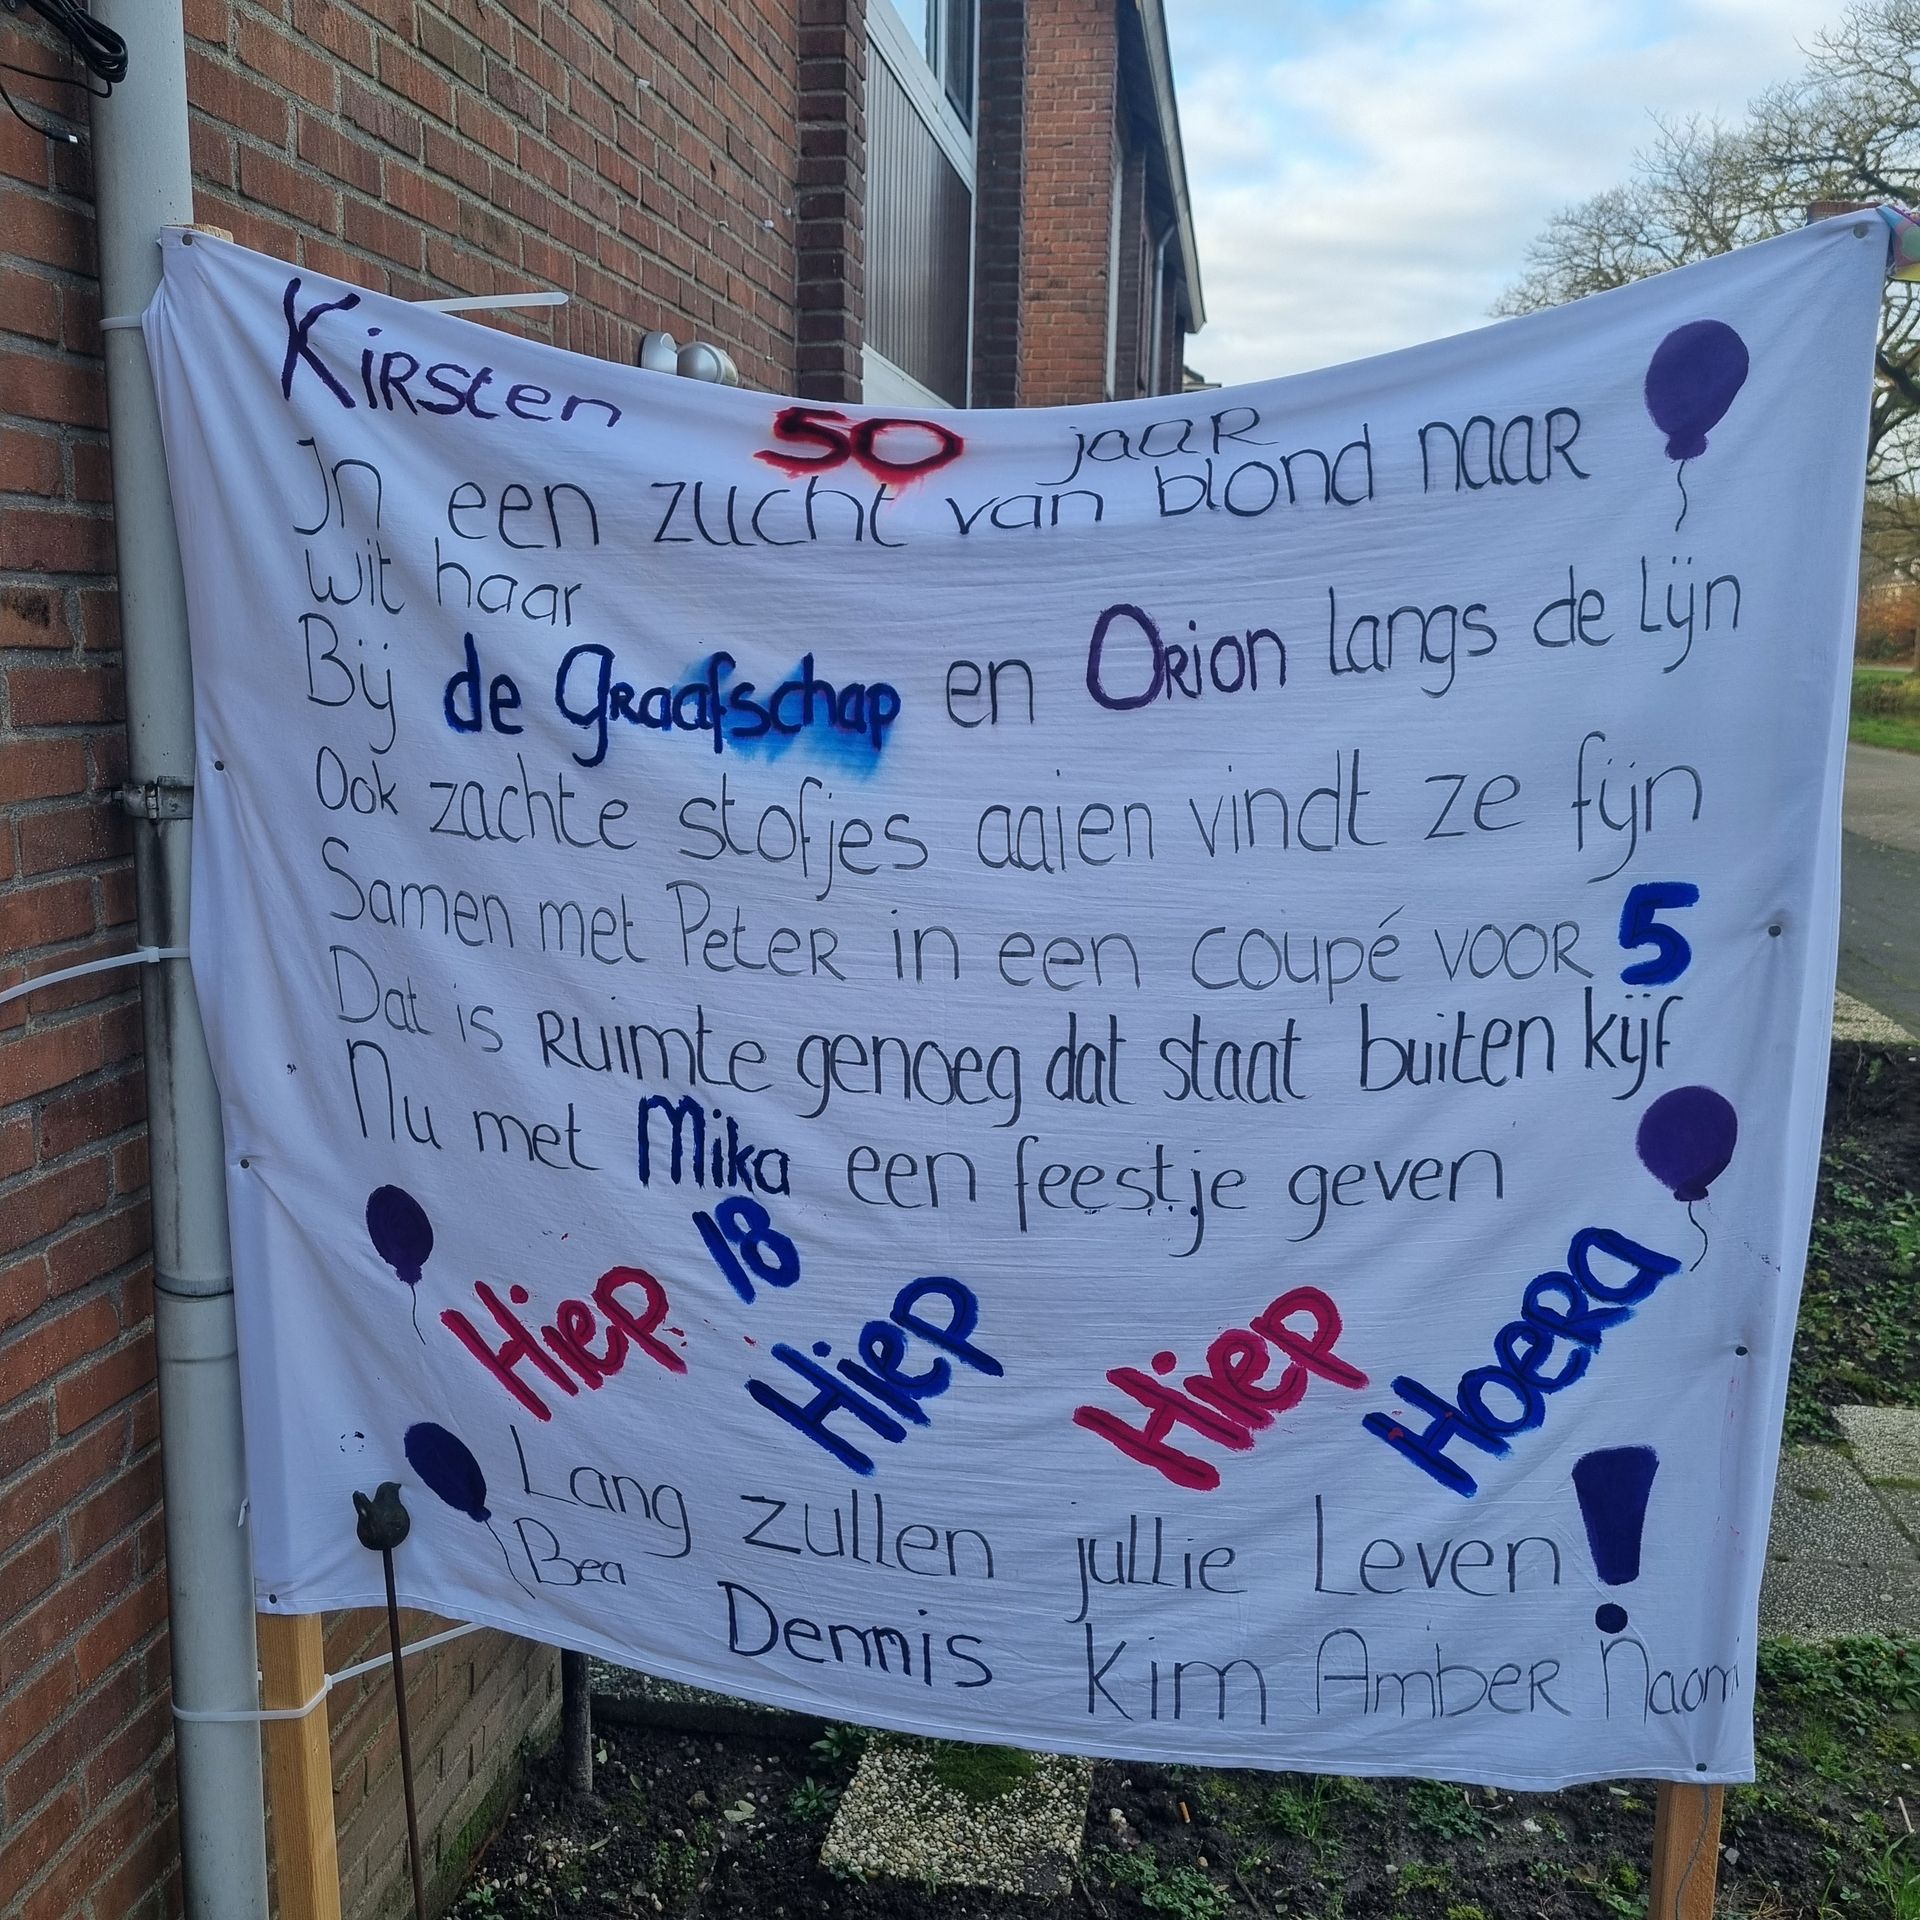 Kirsten 50 jaar
In een zucht van blond naar
wit haar
Bij de Graafschap en Orion langs de lijn
Ook zachte stofjes aaien vindt ze fijn
Samen met Peter in een coupé voor 5
Dat is ruimte genoeg dat staat buiten kijf
Nu met Mika een feestje geven
18
Hiep Hiep Hiep Hoera
Lang zullen jullie Leven!
Bea Dennis Kim Amber Naomi